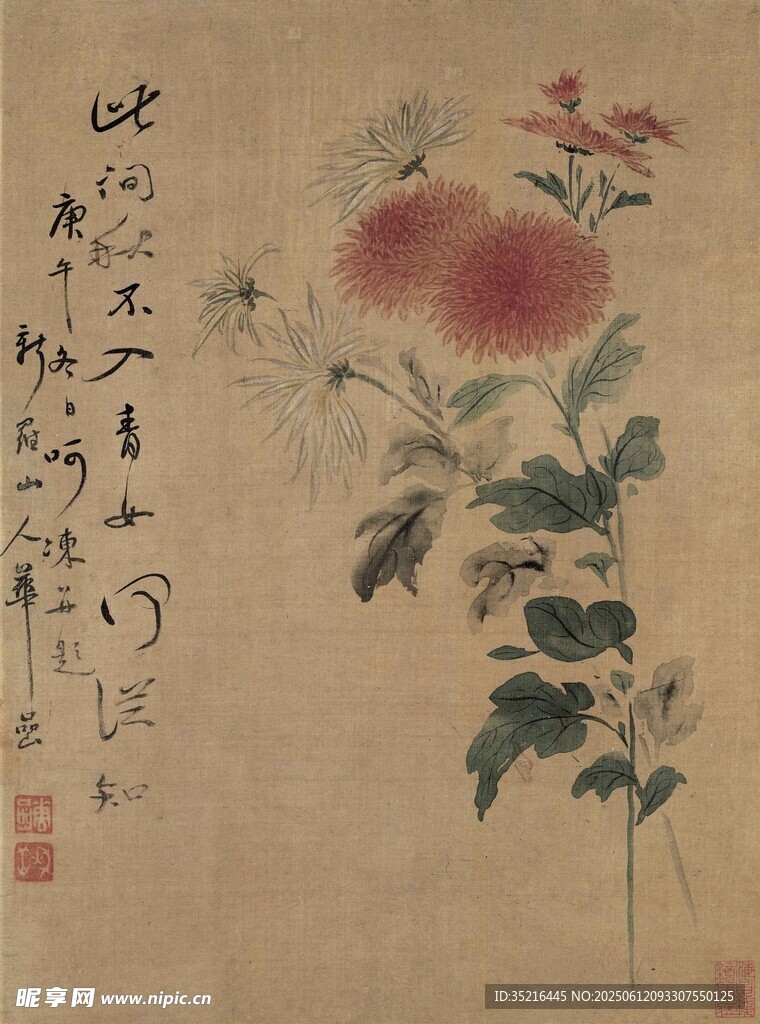 此澗秋不入青女何從知
庚午冬日呵凍并題
新羅山人華喦
昵享网 www.nipic.cn
ID:35216445 NO:20250612093307550125